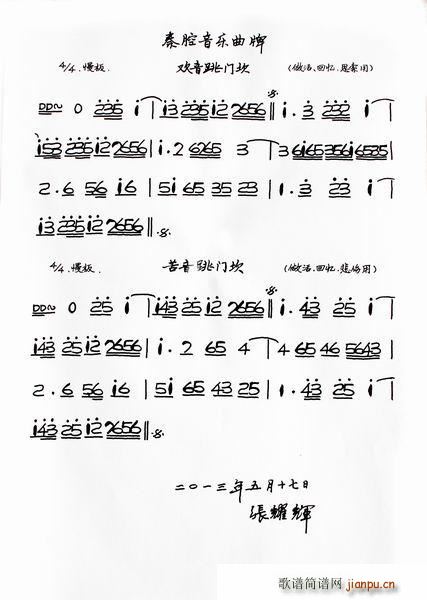 秦腔音乐曲牌
4/4 慢板 欢音跳门坎 (做活、回忆、思索用)
DD~ 0 235 i | i3 235 i2 2656 | i . 3 232 i |
i53 235 i2 2656 | i . 2 6265 3 | 3 6i65 356i 6535 |
2 . 6 56 i6 | 5i 65 35 23 | i . 3 23 i |
i3 235 i2 2656 ||
4/4 慢板. 苦音跳门坎 (做活、回忆、悲伤用)
DD~ 0 25 i | i43 25 i2 2656 | i . 43 25 i |
i43 25 i2 2656 | i . 2 65 4 | 4 65 46 5643 |
2 . 6 56 i6 | 5i 65 43 25 | 1 . 43 25 i |
i43 25 i2 2656 ||
二〇一三年五月十七日
張耀輝
歌谱简谱网
jianpu.cn